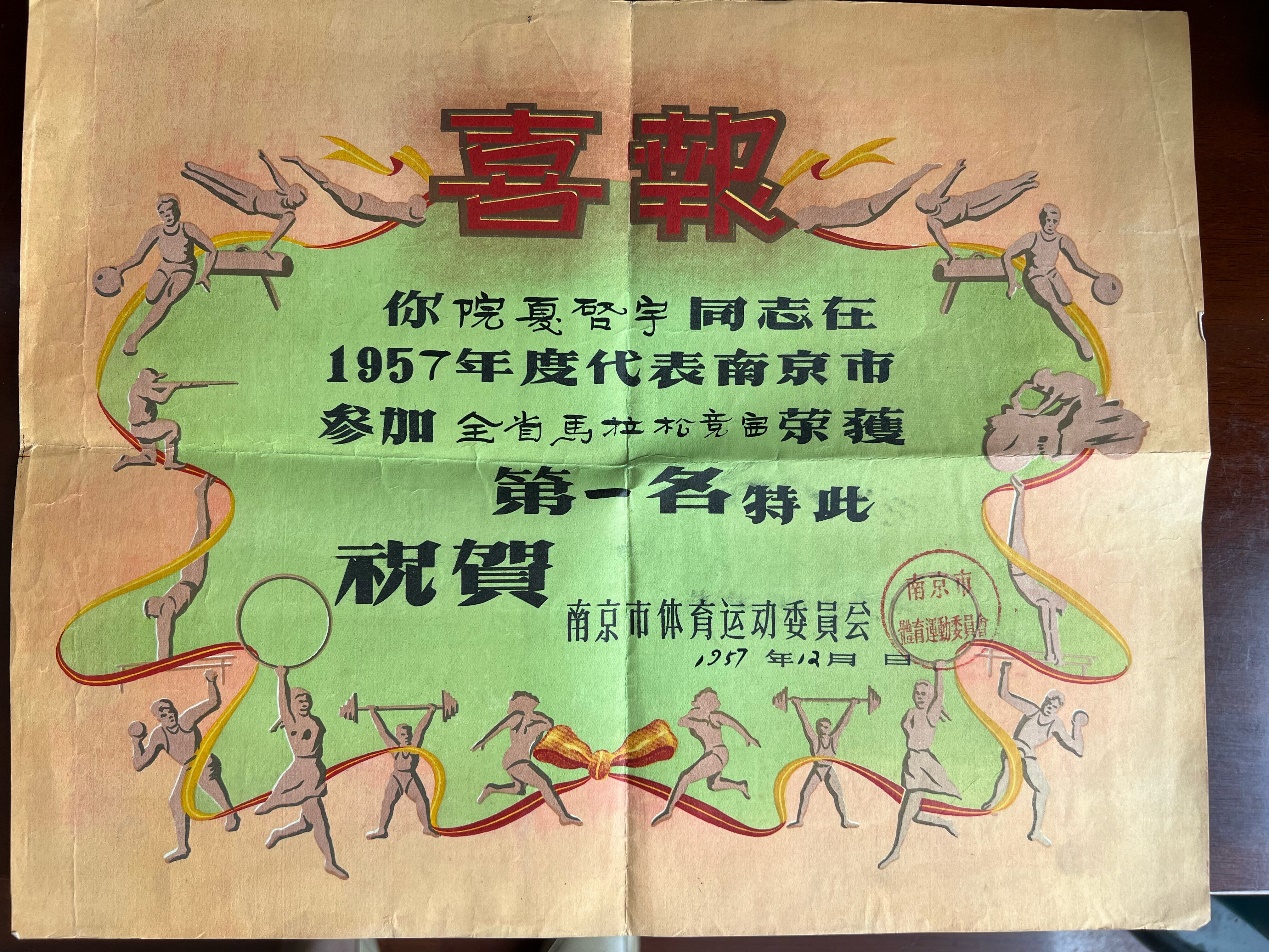 喜報
你院夏啓宇同志在
1957年度代表南京市
参加全省馬拉松竞宙荣獲
第一名特此
祝賀
南京市体育运动委員会
1957年12月 日
南京市
體育運動委員會